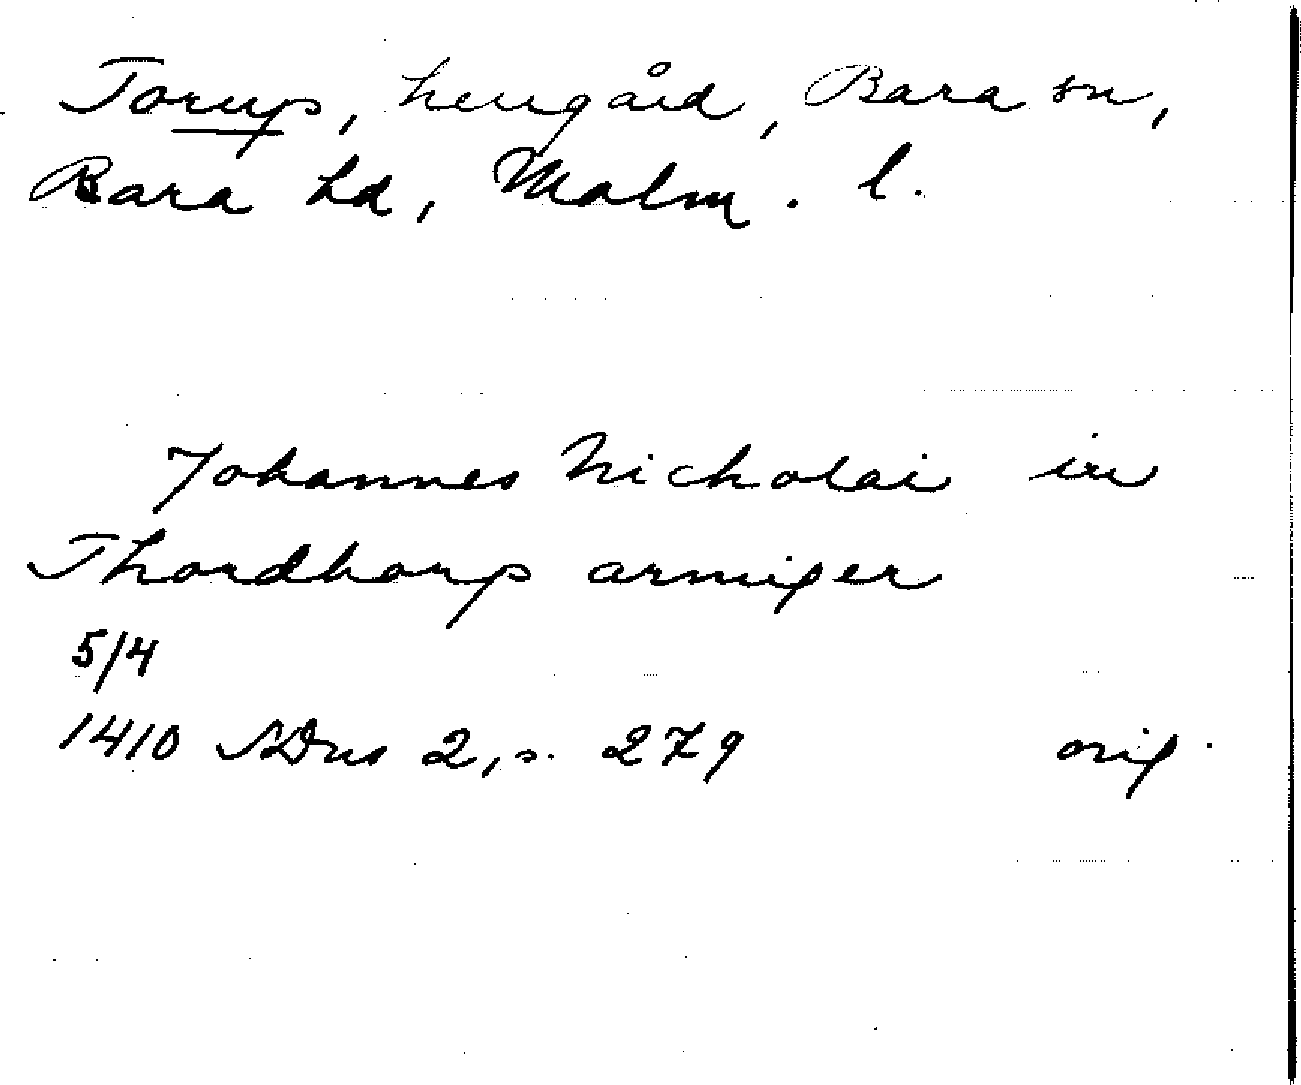 Torup, herrgård, Bara sn,
Bara hd, Malm. l.
Johannes Nicholai in
Thordhorp armiger
5/4
1410 SDns 2, s. 279 orig.